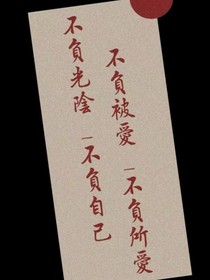 不負被愛
一不負所愛
不負光陰
一不負自己